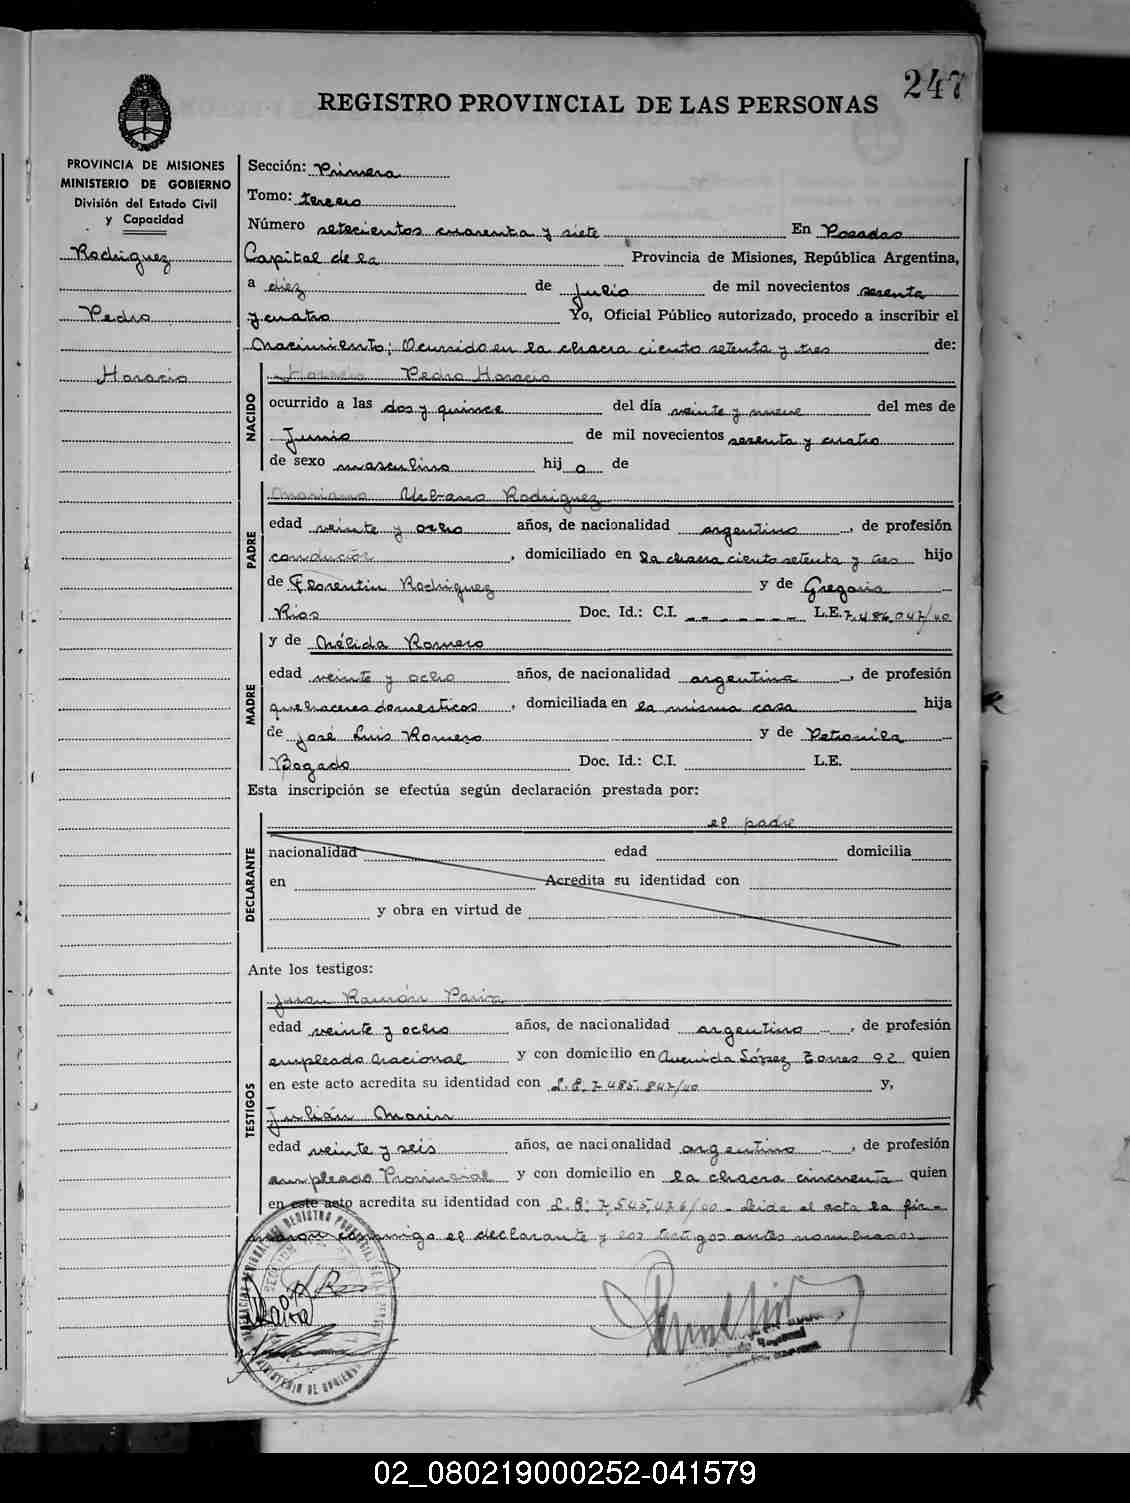 247
REGISTRO PROVINCIAL DE LAS PERSONAS
PROVINCIA DE MISIONES
MINISTERIO DE GOBIERNO
División del Estado Civil
y Capacidad
Rodriguez
Pedro
Horacio
Sección: Primera
Tomo: tercero
Número setecientos cuarenta y siete En Posadas
Capital de la Provincia de Misiones, República Argentina,
a diez de Julio de mil novecientos sesenta
y cuatro Yo, Oficial Público autorizado, procedo a inscribir el
Nacimiento; Ocurrido en la chacra ciento setenta y tres de:
NACIDO
Horacio Pedro Horacio
ocurrido a las dos y quince del día veinte y nueve del mes de
Junio de mil novecientos sesenta y cuatro
de sexo masculino hijo de
PADRE
Mariano Urbano Rodriguez
edad veinte y ocho años, de nacionalidad argentino, de profesión
conductor, domiciliado en la chacra ciento setenta y tres hijo
de Florentin Rodriguez y de Gregoria
Rios Doc. Id.: C.I. - - - - - - - L.E. 7.486.047/40
MADRE
y de Nélida Romero
edad veinte y ocho años, de nacionalidad argentina, de profesión
quehaceres domesticos, domiciliada en la misma casa hija
de José Luis Romero y de Petronila
Bogado Doc. Id.: C.I. L.E.
Esta inscripción se efectúa según declaración prestada por:
DECLARANTE
el padre
nacionalidad edad domicilia
en Acredita su identidad con
y obra en virtud de
Ante los testigos:
TESTIGOS
Juan Ramón Paiva
edad veinte y ocho años, de nacionalidad argentino, de profesión
empleado Nacional y con domicilio en Avenida López Torres 92 quien
en este acto acredita su identidad con L.E. 7.485.847/40 y,
Julián Marin
edad veinte y seis años, de nacionalidad argentino, de profesión
empleado Provincial y con domicilio en la chacra cincuenta quien
en este acto acredita su identidad con L.E. 7.545.476/40 - Leida el acta la fir-
maron conmigo el declarante y los testigos antes nombrados.
02_080219000252-041579